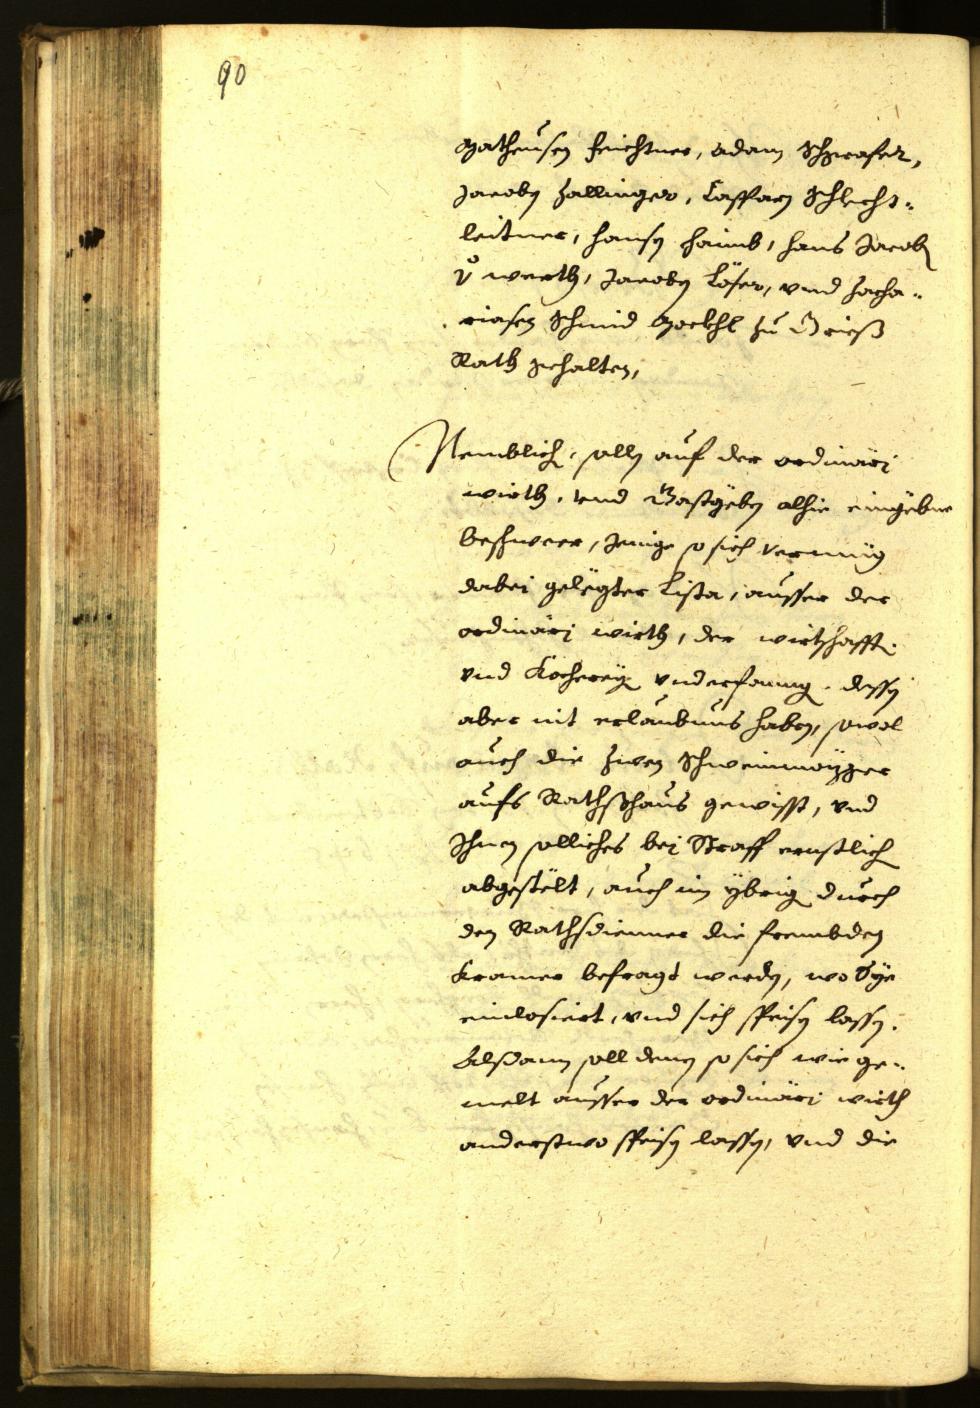 90
Matheusen Feichtner, Adam Schgrafer,
Jacoben Zallinger, Casparn Schlecht-
leitner, Hansen Haimb, Hans Jacob
v: Werth, Jacoben Löser, vnd Zacha-
riasen Schmid Gockhl zu Grieß
Rath gehalten,
Nemblich, sollen auf der ordinäri
wirth, vnd Gastgeben alhie eingebne
beschweer, Jenige so sich vermüg
dabei gelegter Lista, ausser der
ordinäri wirth, der wirtschafft
vnd Kocherey vnderfanng, dessen
aber nit erlaubnus haben, sowol
auch die zwen Schweinmözger
aufs Rathshaus gewisst, vnd
Ihnen solliches bei Straff ernstlich
abgestelt, auch im ybrig durch
den Rathsdienner die frembden
Kramer befragt werden, wo Sye
einlosiert, vnd sich speisen lassen.
Alßdann soll denen so sich wie ge-
melt ausser der ordinäri wirth
anderstwo speisen lassen, vnd die